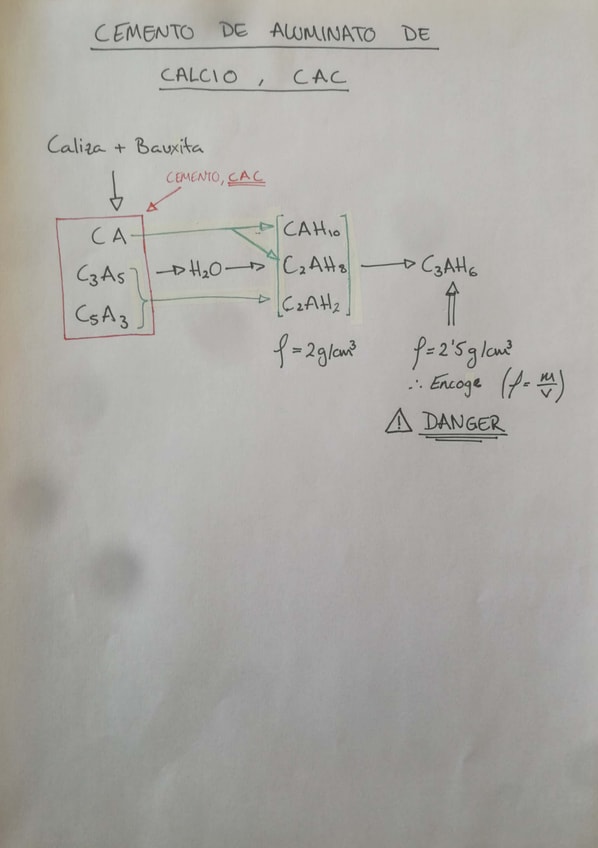 CEMENTO DE ALUMINATO DE
CALCIO, CAC
Caliza + Bauxita
CEMENTO, CAC
CA
C₃A₅
C₅A₃
H₂O
CAH₁₀
C₂AH₈
C₂AH₂
C₃AH₆
ρ = 2 g/cm³
ρ = 2'5 g/cm³
∴ Encoge (ρ = m/v)
⚠ DANGER